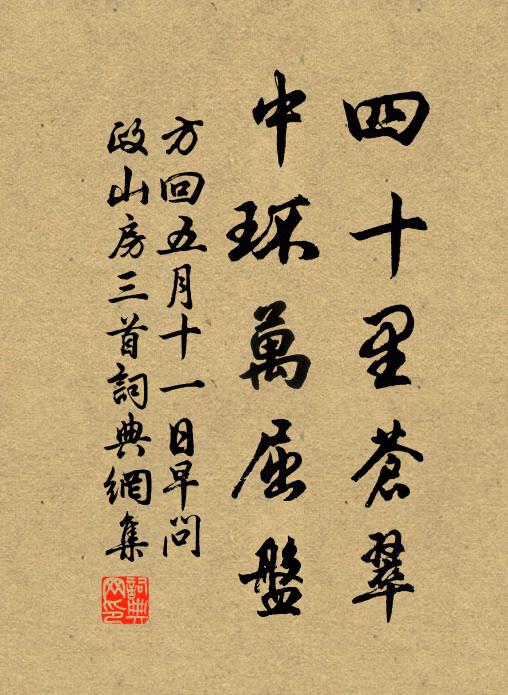 四十里蒼翠
中環萬屈盤
方回五月十一日早問
政山房三首詞典網集
詞典
网印